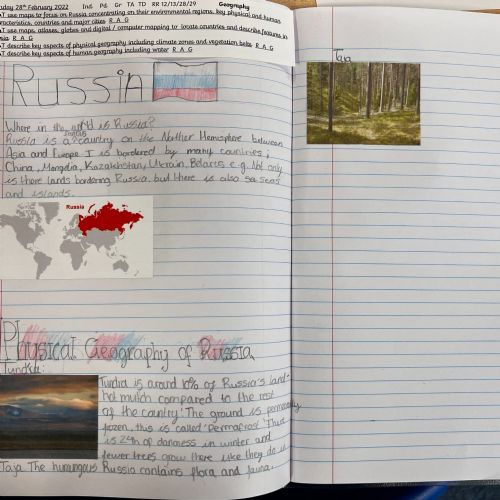 day 28th February 2022 Ind Pd Gr TA TD RR 12/13/28/29 Geography
T use maps to focus on Russia concentrating on their environmental regions, key physical and human
racteristics, countries and major cities R A G
T use maps, atlases, globes and digital / computer mapping to locate countries and describe features in
sia R A G
T describe key aspects of physical geography including climate zones and vegetation belts R A G
T describe key aspects of human geography including water R A G
RUSSIA
Where in the world is Russia?
Russia is a country on the Nother Hemisphere between
Asia and Europe I is bordered by many countries;
China, Mongolia, Kazakhstan, Ukrain, Belarus e.g. Not only
is there lands bordering Russia, but there is also sea seas
and islands.
Russia
Physical Geography of Russia
Tundra:
Tundra is around 10% of Russia's land-
not mutch compared to the rest
of the country! The ground is permanently
frozen, this is called 'Permafrost'. There
is 24h of darkness in winter and
fewer trees grow there like they do in
Taja The humungous Russia contains flora and fauna.
Taja